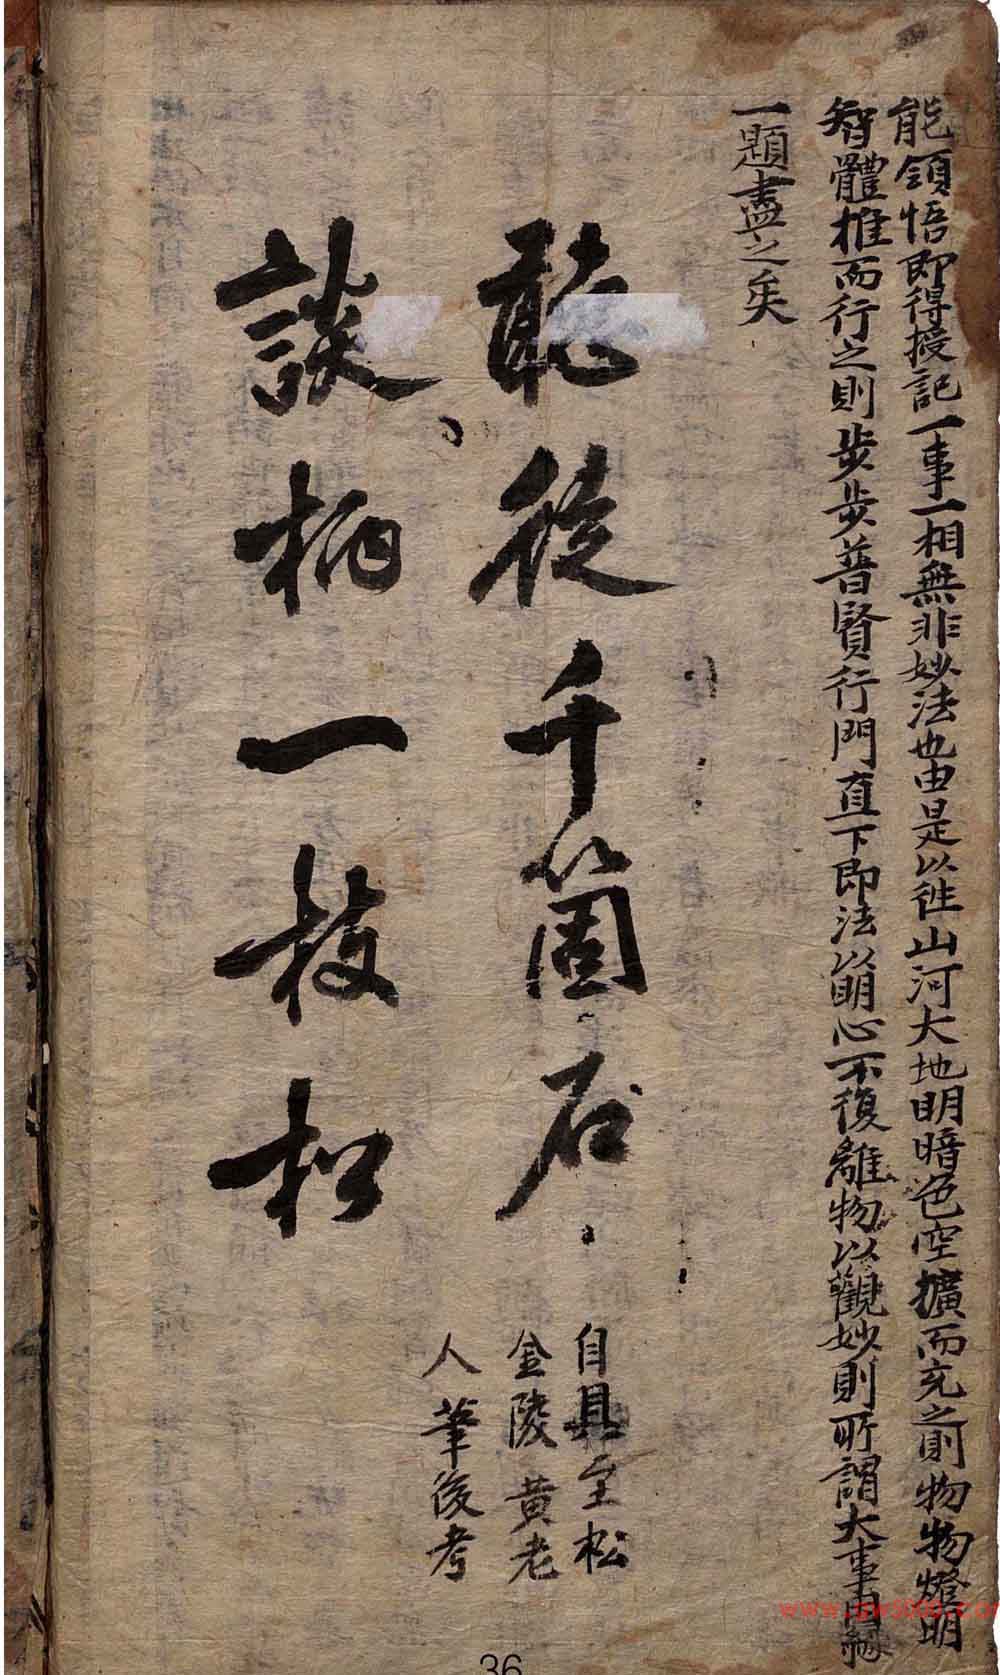 能領悟即得授記一事一相無非妙法也由是以徃山河大地明暗色空擴而充之則物物燈明
智體推而行之則步步普賢行門直下即法以明心不復離物以觀妙則所謂大事因緣
一題盡之矣
聴徒千箇石
談柄一枝松
自具至松
金陵黄老
人筆後考
36
www.gw5000.com